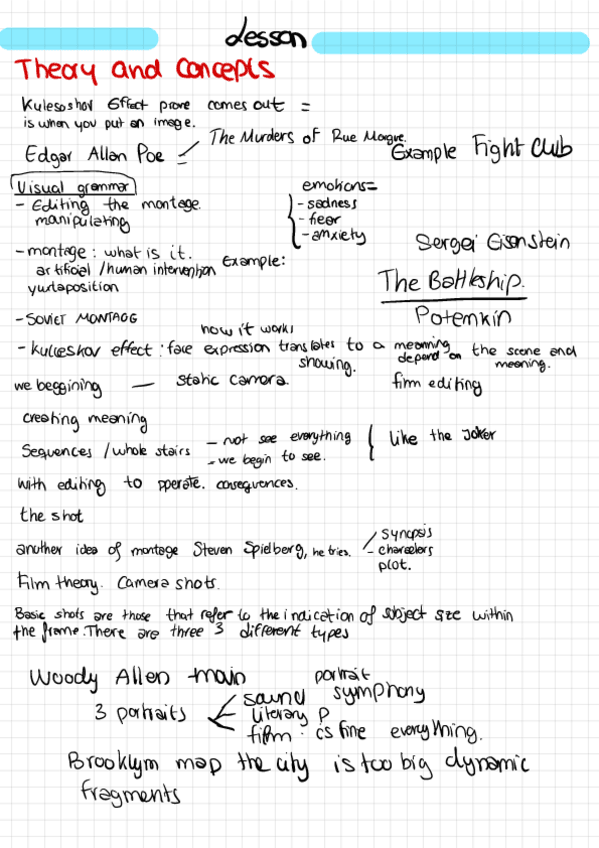 Lesson
Theory and Concepts
Kulesoshov Effect prove comes out =
is when you put an image.
Edgar Allan Poe = The Murders of Rue Morgue.
Example Fight Club
Visual grammar
- Editing the montage.
manipulating
emotions=
- sadness
- fear
- anxiety
- montage : what is it.
artificial / human intervention Example:
yuxtaposition
Sergei Eisenstein
The Battleship.
Potemkin
- SOVIET MONTAGG
how it works
- kulleshov effect : face expression translates to a meanning depend on the scene and meaning.
showing.
we beggining — static camera. firm editing
creating meaning
Sequences / whole stairs - not see everything
- we begin to see.
like the Joker
with editing to pperate. consequences.
the shot
another idea of montage Steven Spielberg, he tries.
synopsis
- charcelors
plot.
Film theory. Camera shots.
Basic shots are those that refer to the indication of subject size within
the frame. There are three 3 different types
Woody Allen main portrait
3 portraits
sound symphony
literary P
film : is fine everything.
Brooklym map the city is too big dynamic
fragments